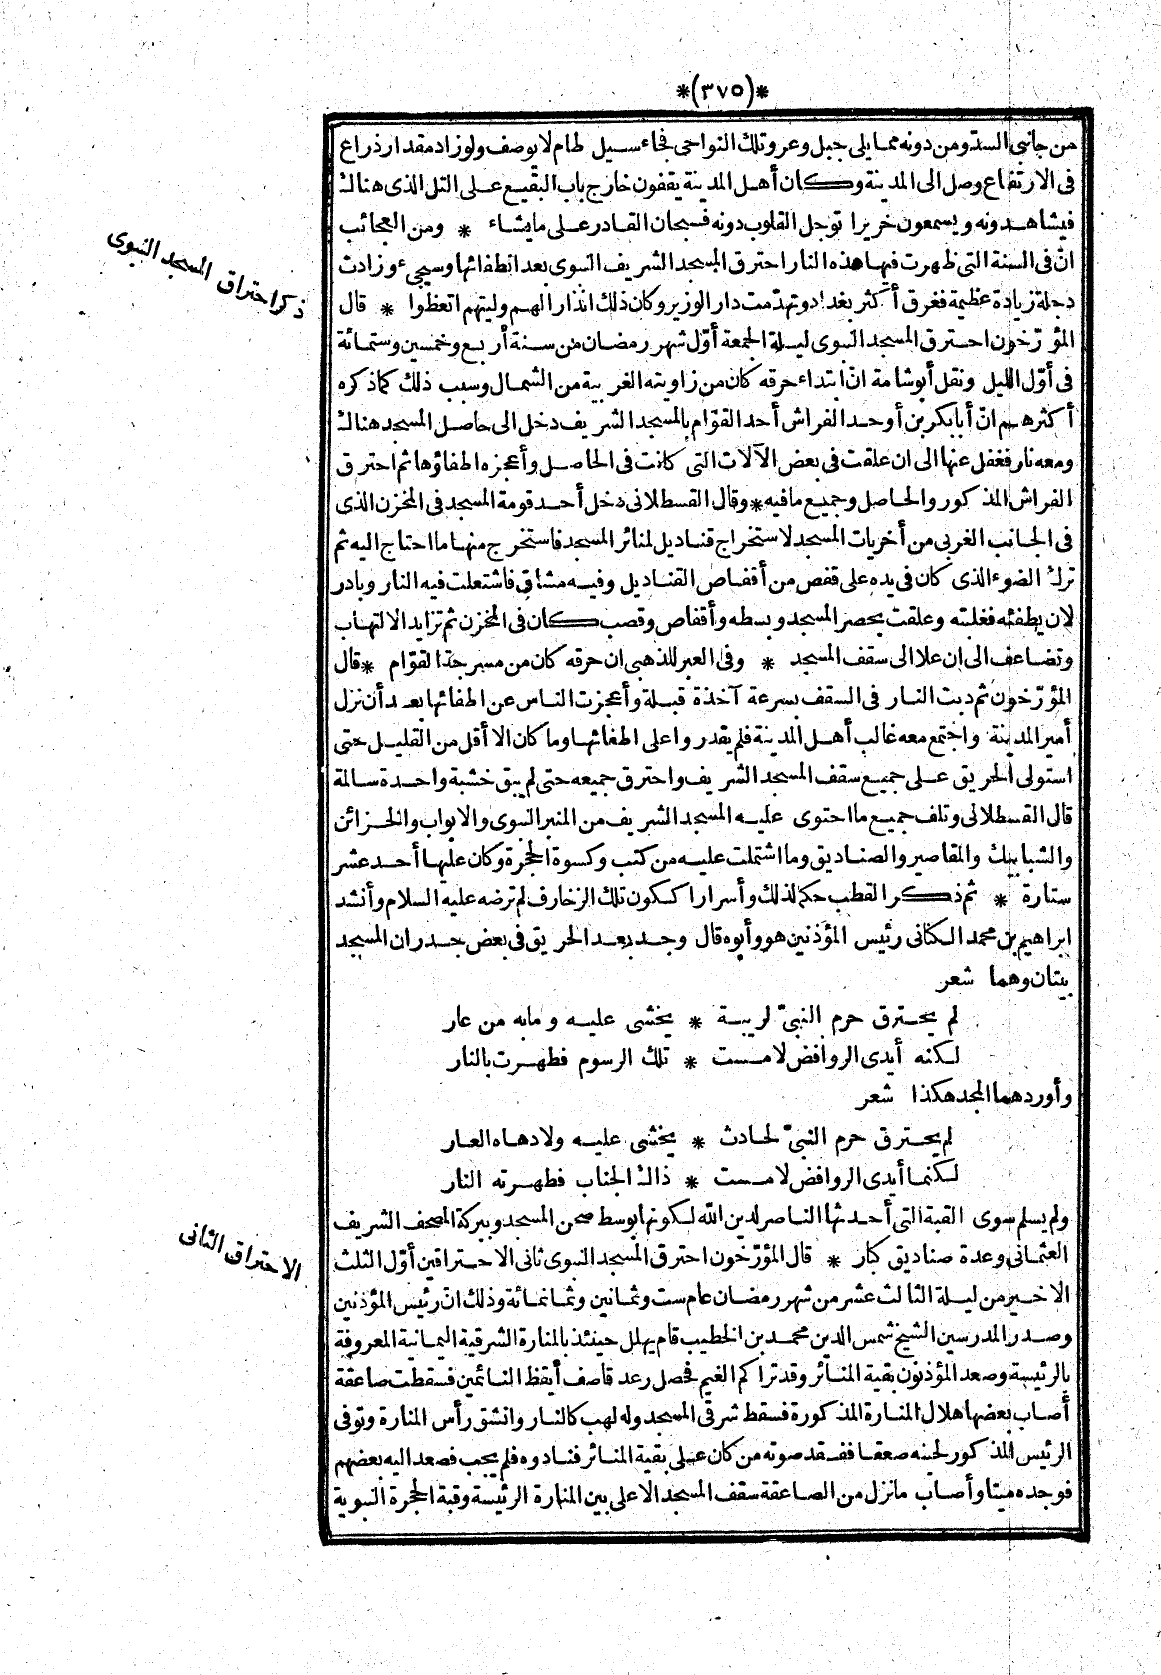 *(٣٧٥)*
من جانبى السدّ ومن دونه مما يلى جبل وعر وتلك النواحى فجاء سيل طام لا يوصف ولو زاد مقدار ذراع
فى الارتفاع وصل الى المدينة وكان أهل المدينة يقفون خارج باب البقيع على التل الذى هنالك
فيشاهدونه ويسمعون خريرا توجل القلوب دونه فسبحان القادر على ما يشاء * ومن العجائب
انّ فى السنة التى ظهرت فيها هذه النار احترق المسجد الشريف النبوى بعد انطفائها وسيجىء وزادت
دجلة زيادة عظيمة فغرق أكثر بغداد وتهدّمت دار الوزير وكان ذلك انذارا لهم وليتهم اتعظوا * قال
المؤرّخون احترق المسجد النبوى ليلة الجمعة أوّل شهر رمضان من سنة أربع وخمسين وستمائة
فى أوّل الليل ونقل أبو شامة انّ ابتداء حرقه كان من زاويته الغربية من الشمال وسبب ذلك كما ذكره
أكثرهم انّ أبا بكر بن أوحد الفراش أحد القوّام بالمسجد الشريف دخل الى حاصل المسجد هنالك
ومعه نار فغفل عنها الى ان علقت فى بعض الآلات التى كانت فى الحاصل وأعجزه اطفاؤها ثم احترق
الفراش المذكور والحاصل وجميع ما فيه * وقال القسطلانى دخل أحد قومة المسجد فى المخزن الذى
فى الجانب الغربى من أخريات المسجد لاستخراج قناديل لمنائر المسجد فاستخرج منها ما احتاج اليه ثم
ترك الضوء الذى كان فى يده على قفص من أقفاص القناديل وفيه مشاق فاشتعلت فيه النار وبادر
لان يطفئه فغلبته وعلقت بحصر المسجد وبسطه وأقفاص وقصب كان فى المخزن ثم تزايد الالتهاب
وتضاعف الى ان علا الى سقف المسجد * وفى العبر للذهبى ان حرقه كان من مسرجة القوّام * قال
المؤرّخون ثم دبت النار فى السقف بسرعة آخذة قبلة وأعجزت الناس عن اطفائها بعد أن نزل
أمير المدينة واجتمع معه غالب أهل المدينة فلم يقدروا على اطفائها وما كان الا أقل من القليل حتى
استولى الحريق على جميع سقف المسجد الشريف واحترق جميعه حتى لم يبق خشبة واحدة سالمة
قال القسطلانى وتلف جميع ما احتوى عليه المسجد الشريف من المنبر النبوى والابواب والخزائن
والشبابيك والمقاصير والصناديق وما اشتملت عليه من كتب وكسوة الحجرة وكان عليها أحد عشر
ستارة * ثم ذكر القطب حكم لذلك وأسرارا ككون تلك الزخارف لم ترضه عليه السلام وأنشد
ابراهيم بن محمد الكنانى رئيس المؤذنين هو وأبوه قال وجد بعد الحريق فى بعض جدران المسجد
بيتان وهما شعر
لم يحترق حرم النبىّ لريبة * يخشى عليه وما به من عار
لكنه أيدى الروافض لامست * تلك الرسوم فطهرت بالنار
وأوردهما المجد هكذا شعر
لم يحترق حرم النبىّ لحادث * يخشى عليه ولا دهاه العار
لكنما أيدى الروافض لامست * ذاك الجناب فطهرته النار
ولم يسلم سوى القبة التى أحدثها الناصر لدين الله لكونها بوسط صحن المسجد وببركة المصحف الشريف
العثمانى وعدة صناديق كبار * قال المؤرّخون احترق المسجد النبوى ثانى الاحتراقين أوّل الثلث
الاخير من ليلة الثالث عشر من شهر رمضان عام ست وثمانين وثمانمائة وذلك انّ رئيس المؤذنين
وصدر المدرسين الشيخ شمس الدين محمد بن الخطيب قام يهلل حينئذ بالمنارة الشرقية اليمانية المعروفة
بالرئيسة وصعد المؤذنون بقية المنائر وقد تراكم الغيم فحصل رعد قاصف أيقظ النائمين فسقطت صاعقة
أصاب بعضها هلال المنارة المذكورة فسقط شرقى المسجد وله لهب كالنار وانشق رأس المنارة وتوفى
الرئيس المذكور لحينه صعقا ففقد صوته من كان على بقية المنائر فنادوه فلم يجب فصعد اليه بعضهم
فوجده ميتا وأصاب ما نزل من الصاعقة سقف المسجد الاعلى بين المنارة الرئيسة وقبة الحجرة النبوية
ذكر احتراق المسجد النبوى
الاحتراق الثانى